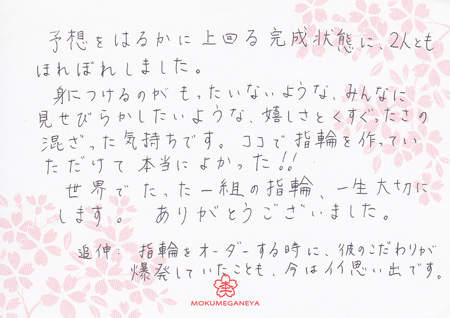 予想をはるかに上回る完成状態に、2人とも
ほれぼれしました。
身につけるのがもったいないような、みんなに
見せびらかしたいような、嬉しさとくすぐったさの
混ざった気持ちです。ココで指輪を作ってい
ただけて本当によかった!!
世界でたった一組の指輪、一生大切に
します。 ありがとうございました。
追伸:指輪をオーダーする時に、彼のこだわりが
爆発していたことも、今はイイ思い出です。
MOKUMEGANEYA